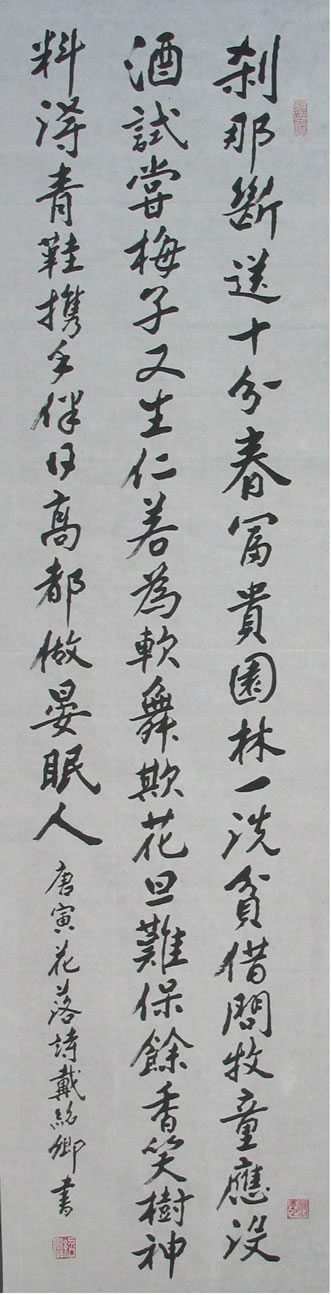 刹那斷送十分春冨貴園林一洗貧借問牧童應没
酒試嘗梅子又生仁若為軟舞欺花旦難保餘香笑樹神
料得青鞋携手伴日高都做晏眠人 唐寅花落詩戴紹卿書